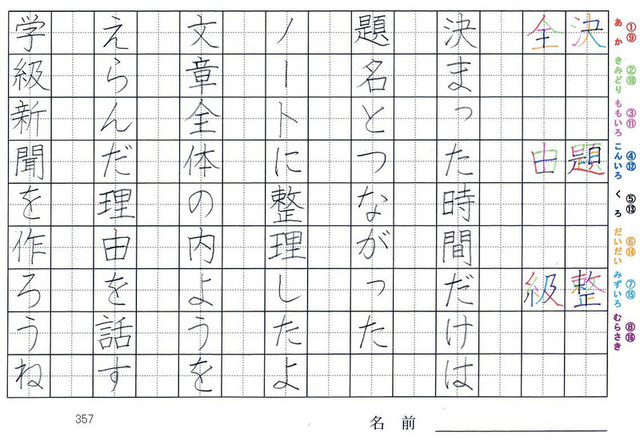 あか ①⑨
きみどり ②⑩
ももいろ ③⑪
こんいろ ④⑫
くろ ⑤⑬
だいだい ⑥⑭
みずいろ ⑦⑮
むらさき ⑧⑯
決 題 整
全 由 級
決まった時間だけは
題名とつながった
ノートに整理したよ
文章全体の内ようを
えらんだ理由を話す
学級新聞を作ろうね
357
名前